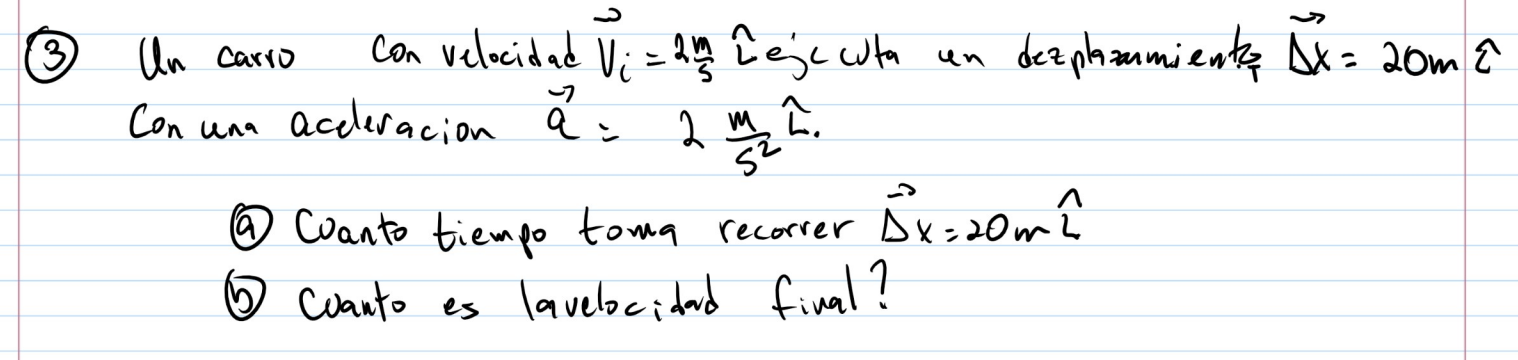 ③ Un carro con velocidad V⃗i = 2 m/s î ejecuta un dezplazamiento Δ⃗x = 20m î
Con una aceleracion a⃗ = 2 m/s² î.
ⓐ Cuanto tiempo toma recorrer Δ⃗x = 20m î
ⓑ Cuanto es la velocidad final?